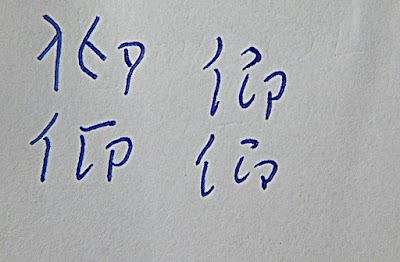 仰 仰
仰 仰